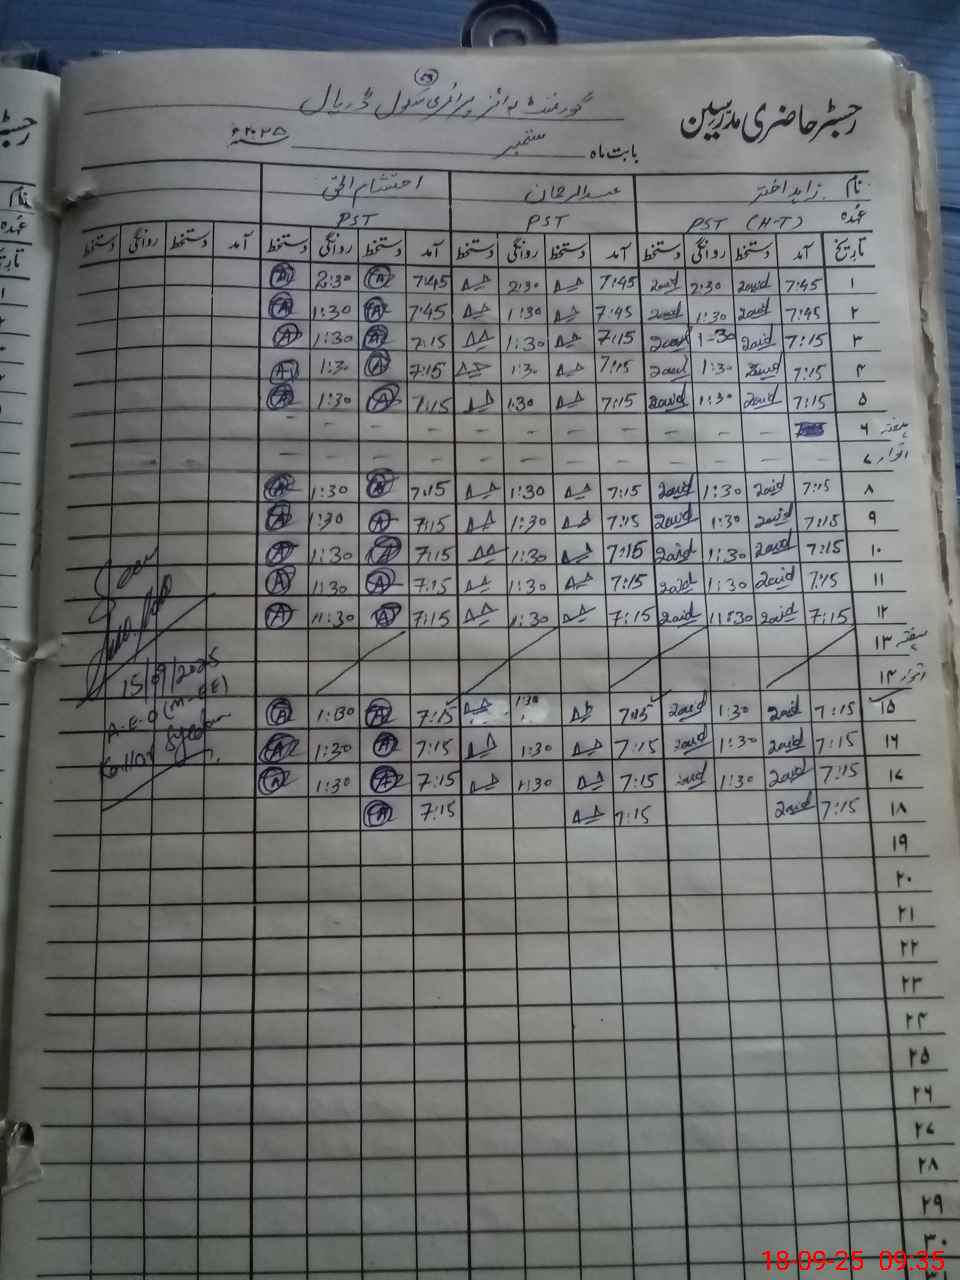 رجسٹر حاضری مدرسین
گورنمنٹ بوائز پرائمری سکول ڈریال
بابت ماہ ستمبر ۲۰۲۵ء
نام زاہد اختر عبدالرحمان احتشام الحق
عہدہ PST (H-T) PST PST
تاریخ آمد دستخط روانگی دستخط آمد دستخط روانگی دستخط آمد دستخط روانگی دستخط آمد دستخط روانگی دستخط
۱ 7:45 2:30 7:45 2:30 7:45 A 2:30 A
۲ 7:45 1:30 7:45 1:30 7:45 A 1:30 A
۳ 7:15 1-30 7:15 1:30 7:15 A 1:30 A
۴ 7:15 1:30 7:15 1:30 7:15 A 1:30 A
۵ 7:15 1:30 7:15 1:30 7:15 A 1:30 A
۶ ہفتہ – – – – – – – – – – –
۷ اتوار – – – – – – – – – – – –
۸ 7:15 1:30 7:15 1:30 7:15 A 1:30 A
۹ 7:15 1:30 7:15 1:30 7:15 A 1:30 A
۱۰ 7:15 1:30 7:15 1:30 7:15 A 1:30 A
۱۱ 7:15 1:30 7:15 1:30 7:15 A 1:30 A
۱۲ 7:15 1:30 7:15 1:30 7:15 A 1:30 A
۱۳ ہفتہ
۱۴ اتوار
۱۵ 7:15 1:30 7:15 1:30 7:15 A 1:30 A
۱۶ 7:15 1:30 7:15 1:30 7:15 A 1:30 A
۱۷ 7:15 1:30 7:15 1:30 7:15 A 1:30 A
۱۸ 7:15 7:15 7:15 A
15/09/2025
A-E-O (M-EE)
Kallar Syedan
۱۹
۲۰
۲۱
۲۲
۲۳
۲۴
۲۵
۲۶
۲۷
۲۸
۲۹
۳۰
۳۱
18-09-25 09:35